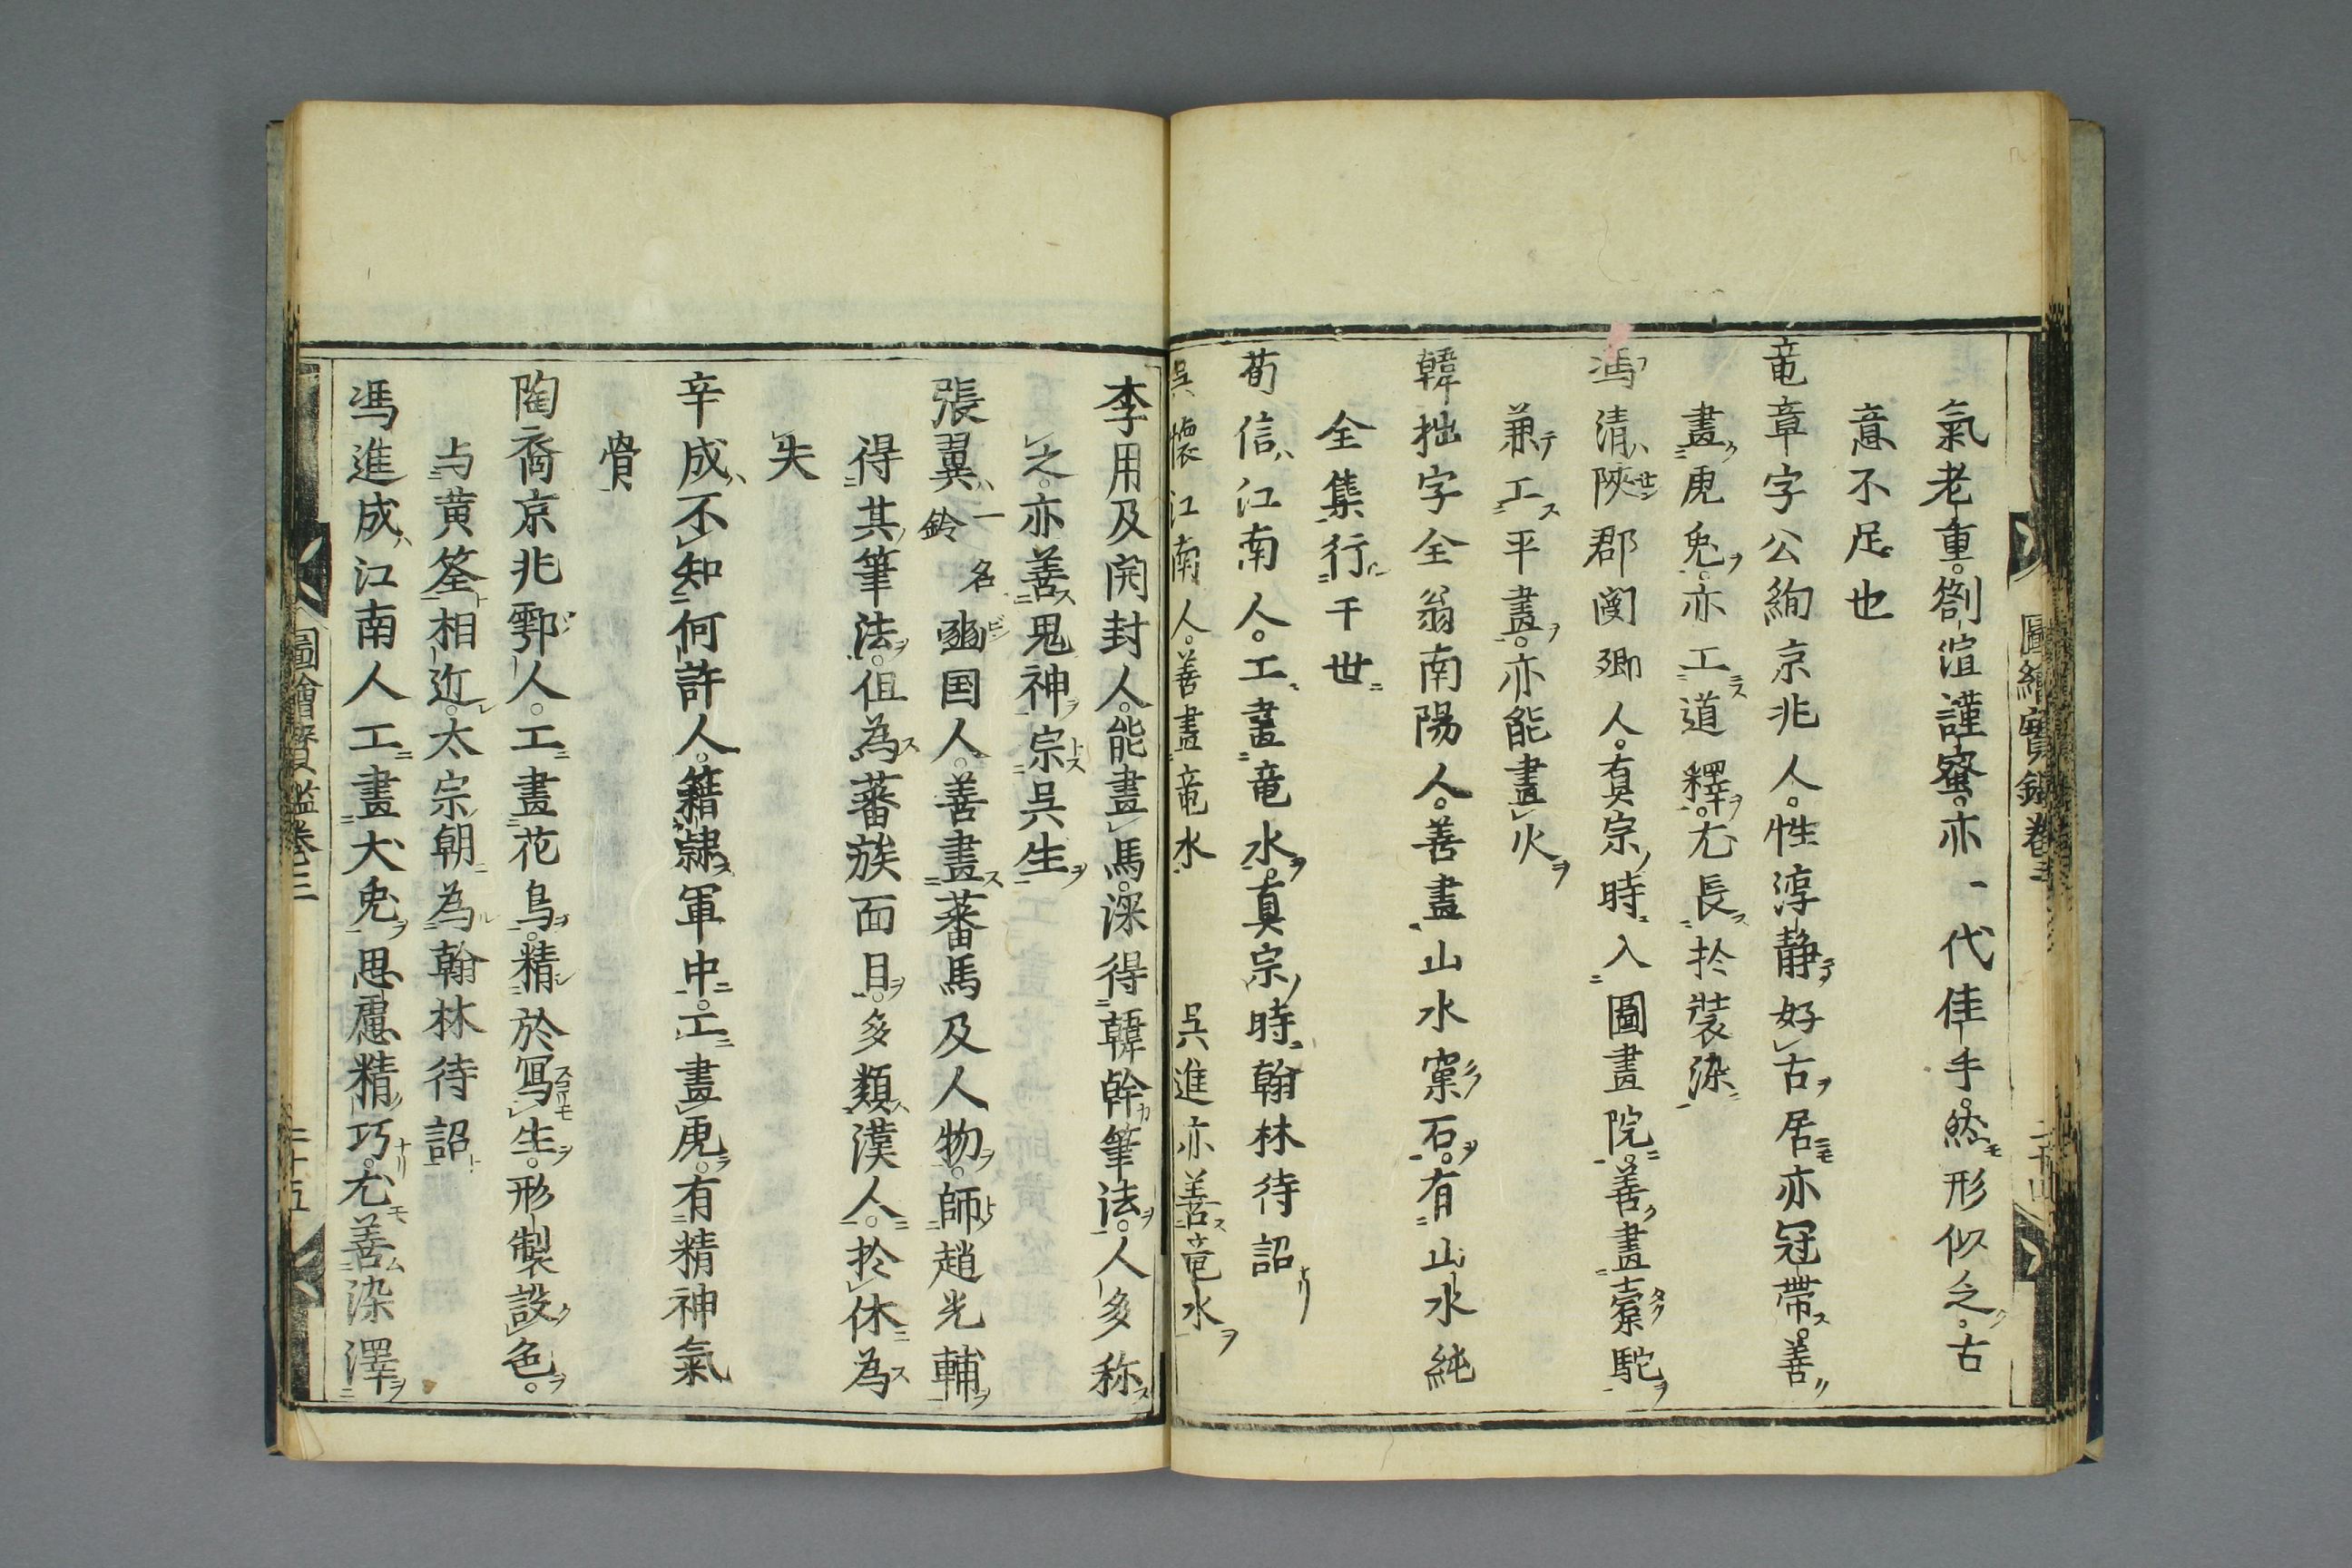 氣老重。劄渲謹密。亦一代佳手。然形似之。古
意不足也
竜章字公絢京兆人。性淳静好古居亦冠帶。善
畫虎兔。亦工道釋。尤長於裝染
馮清陝郡閿鄉人。真宗時入圖畫院。善畫槖駝
兼工平畫。亦能畫火
韓拙字全翁南陽人。善畫山水窠石。有山水純
全集行千世
荀信江南人。工畫竜水。真宗時翰林待詔
呉懷江南人。善畫竜水 呉進亦善竜水
李用及開封人。能畫馬。深得韓幹筆法。人多称
之。亦善鬼神。宗呉生
張翼一名鈴豳国人。善畫蕃馬及人物。師趙光輔
得其筆法。但為蕃族面目。多類漢人。於休為
失
辛成不知何許人。籍隷軍中。工畫虎。有精神氣
骨
陶裔京兆鄠人。工畫花鳥。精於冩生。形製設色。
与黄筌相近。太宗朝為翰林待詔
馮進成江南人工畫犬兔思慮精巧。尤善染澤
圖繪寶鑑卷三
二十五